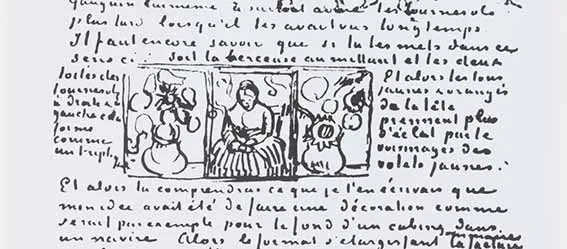 Gauguin lui même a surtout aimé les tournesols
plus tard lorsqu'il les avait vus longtemps.
Il faut encore savoir que si tu les mets dans ce
sens ci soit la berceuse au milieu et les deux
toiles des
tournesols
à droite et à
gauche cela
forme
comme
un triptyque
Et alors les tons
jaunes et orangés
de la tête
prennent plus
d'éclat par le
voisinages des
volets jaunes.
Et alors tu comprendras ce que je t'en écrivais que
mon idée avait été de faire une décoration comme
serait par exemple pour le fond d'un cabine dans
un navire Alors le format s'élargissant la facture